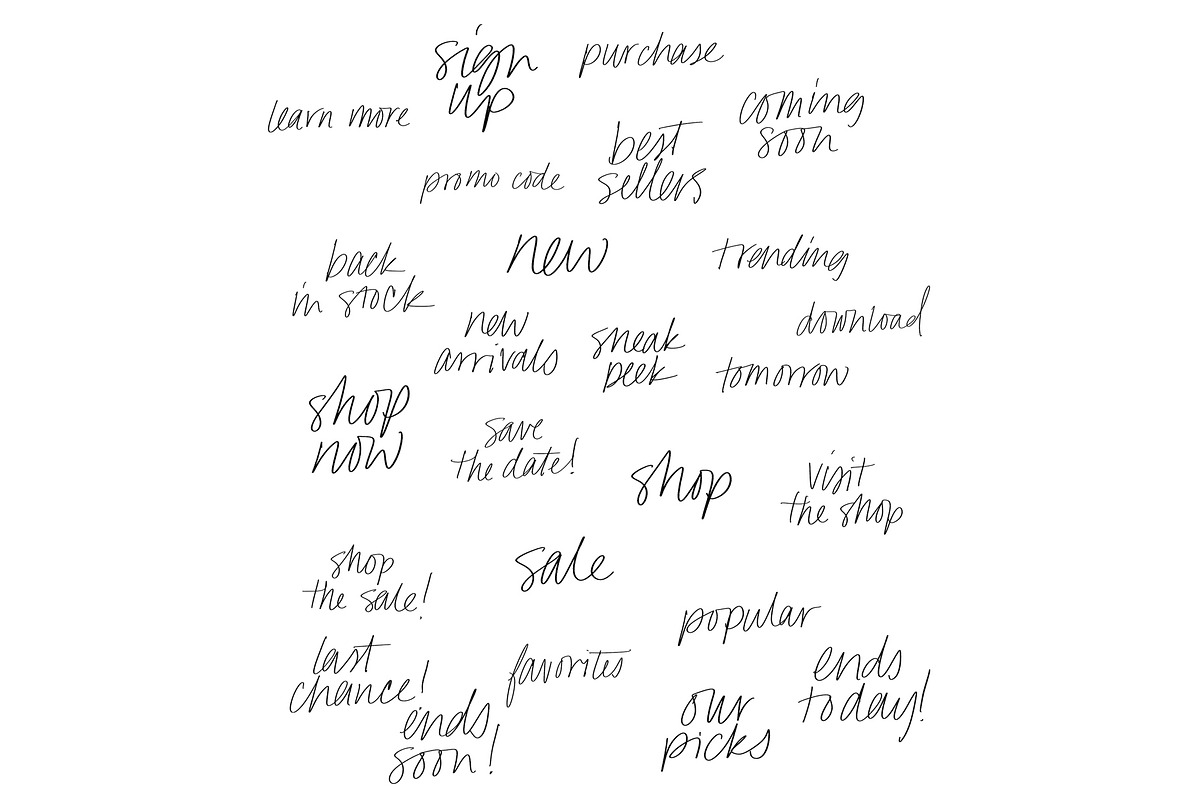 sign
up
purchase
learn more
coming
soon
best
sellers
promo code
back
in stock
new
trending
new
arrivals
sneak
peek
download
tomorrow
shop
now
save
the date!
shop
visit
the shop
shop
the sale!
sale
popular
last
chance!
favorites
ends
today!
ends
soon!
our
picks